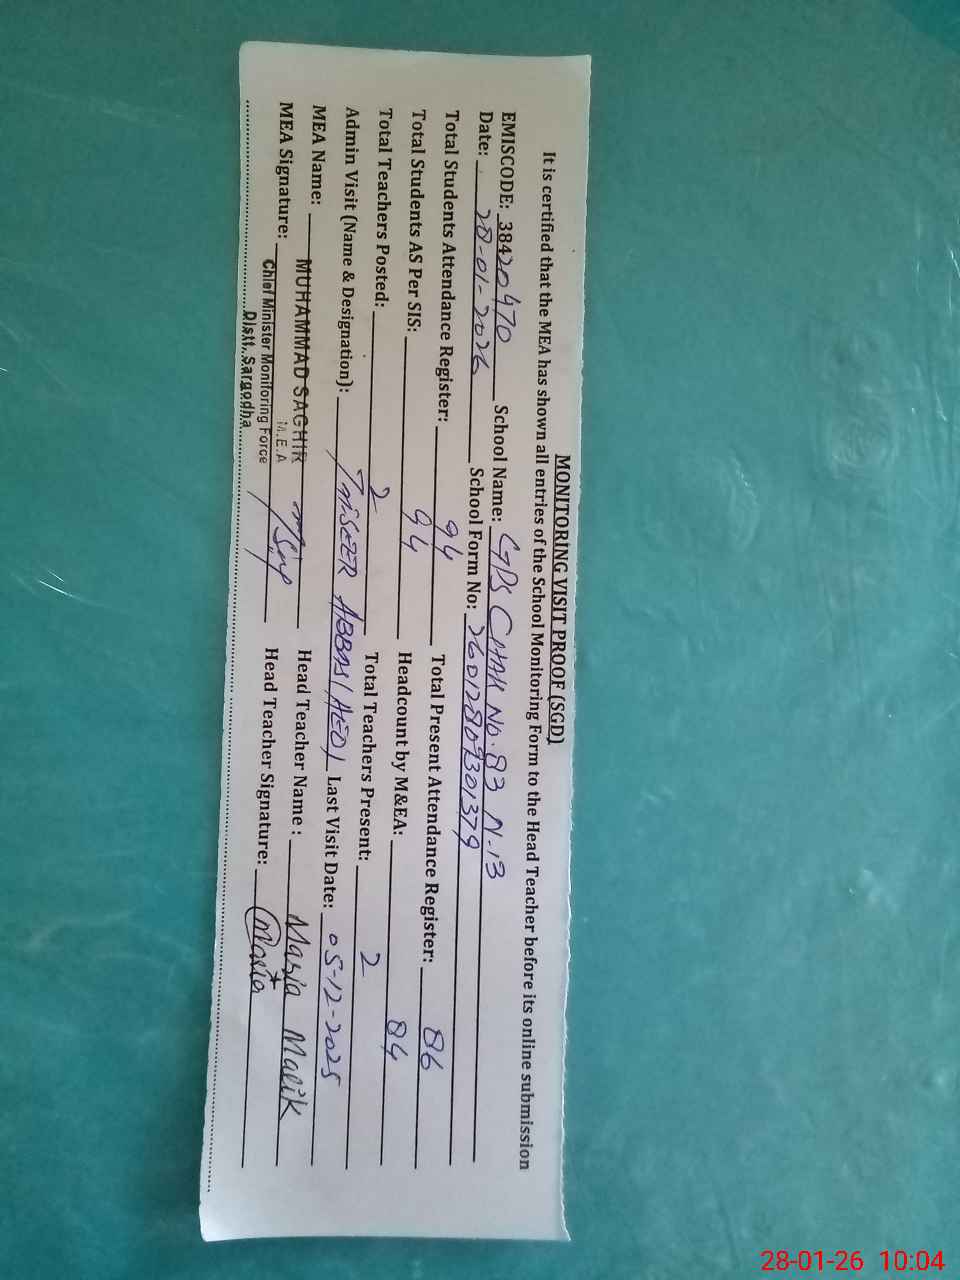 MONITORING VISIT PROOF (SGD)
It is certified that the MEA has shown all entries of the School Monitoring Form to the Head Teacher before its online submission
EMISCODE: 38420470 School Name: GPS CHAK No. 83 N.B
Date: 28-01-2026 School Form No: 26012809301379
Total Students Attendance Register: 94 Total Present Attendance Register: 86
Total Students AS Per SIS: 94 Headcount by M&EA: 84
Total Teachers Posted: 2 Total Teachers Present: 2
Admin Visit (Name & Designation): ABBAS/AEO/ Last Visit Date: 05-12-2025
MEA Name: MUHAMMAD SAGHIR Head Teacher Name: Malik
M.E.A
MEA Signature: Head Teacher Signature:
Chief Minister Monitoring Force
Distt. Sargodha
28-01-26 10:04